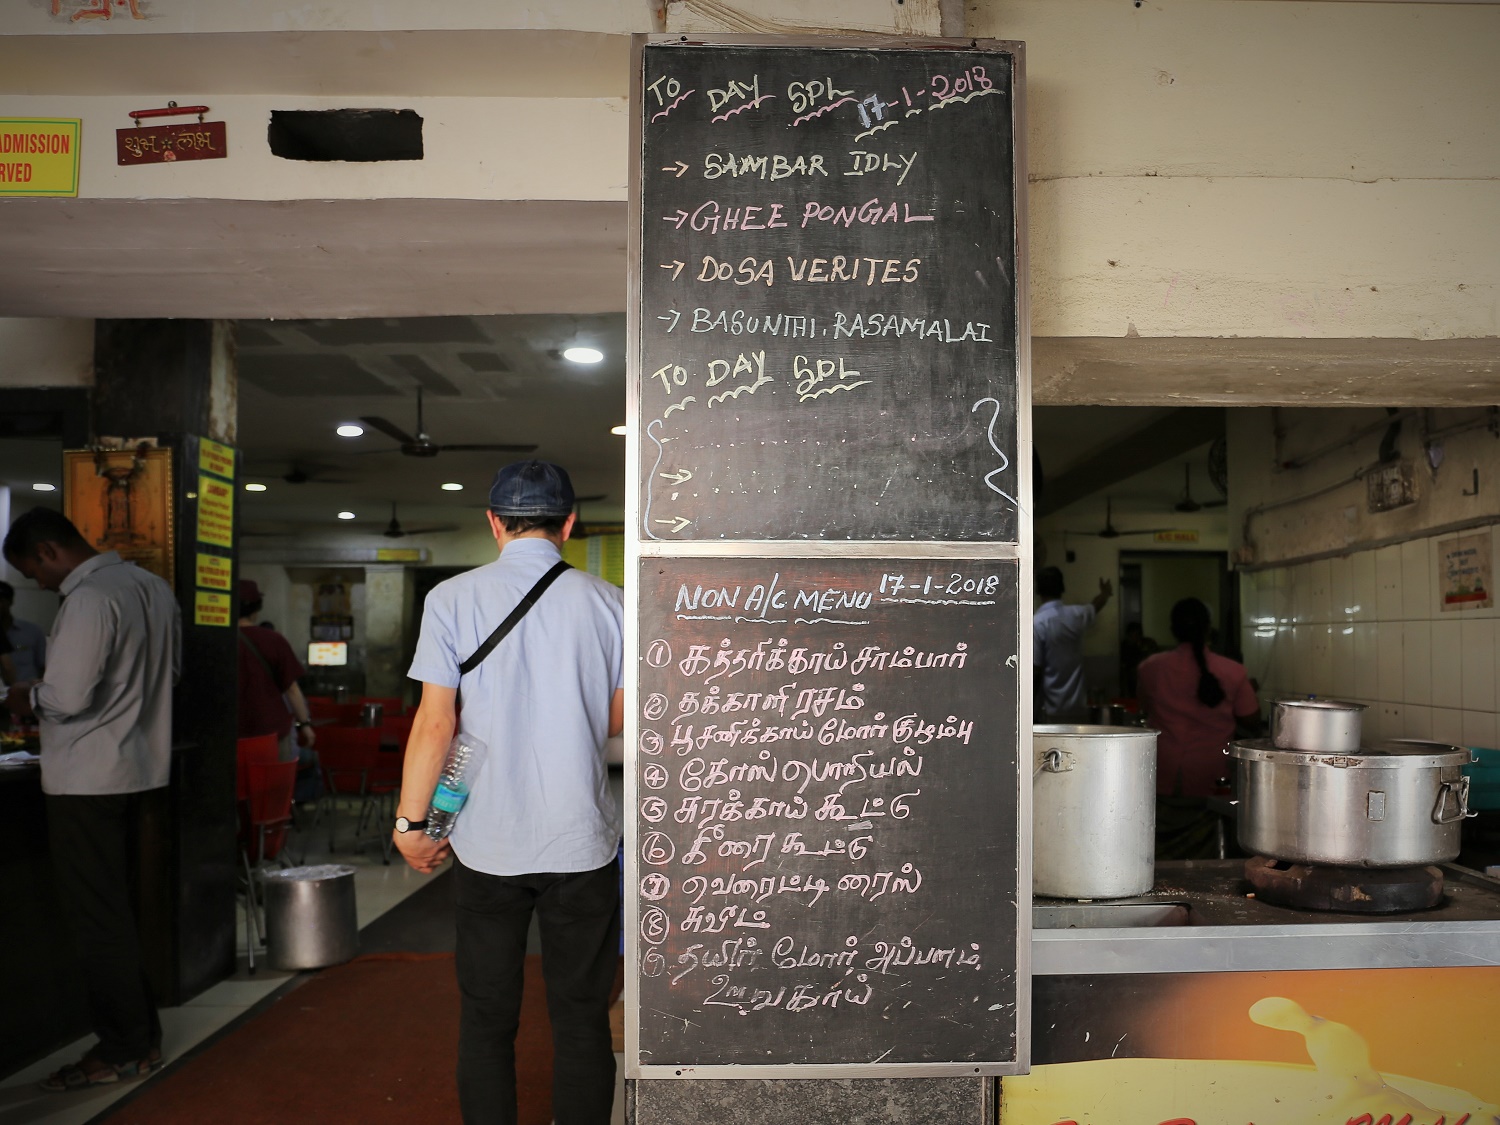 ADMISSION
RVED
શુભ લાભ
TO DAY SPL 17-1-2018
→ SAMBAR IDLY
→ GHEE PONGAL
→ DOSA VERITES
→ BASUNTHI. RASAMALAI
TO DAY SPL
→
→
NON A/C MENU 17-1-2018
① கத்தரிக்காய் சாம்பார்
② தக்காளி ரசம்
③ பூசனிக்காய் மோர் குழம்பு
④ கோஸ் பொறியல்
⑤ சுரக்காய் கூட்டு
⑥ கீரை கூட்டு
⑦ வெரைட்டி ரைஸ்
⑧ சுவீட்
⑨ தயிர் மோர், அப்பளம்,
ஊறுகாய்